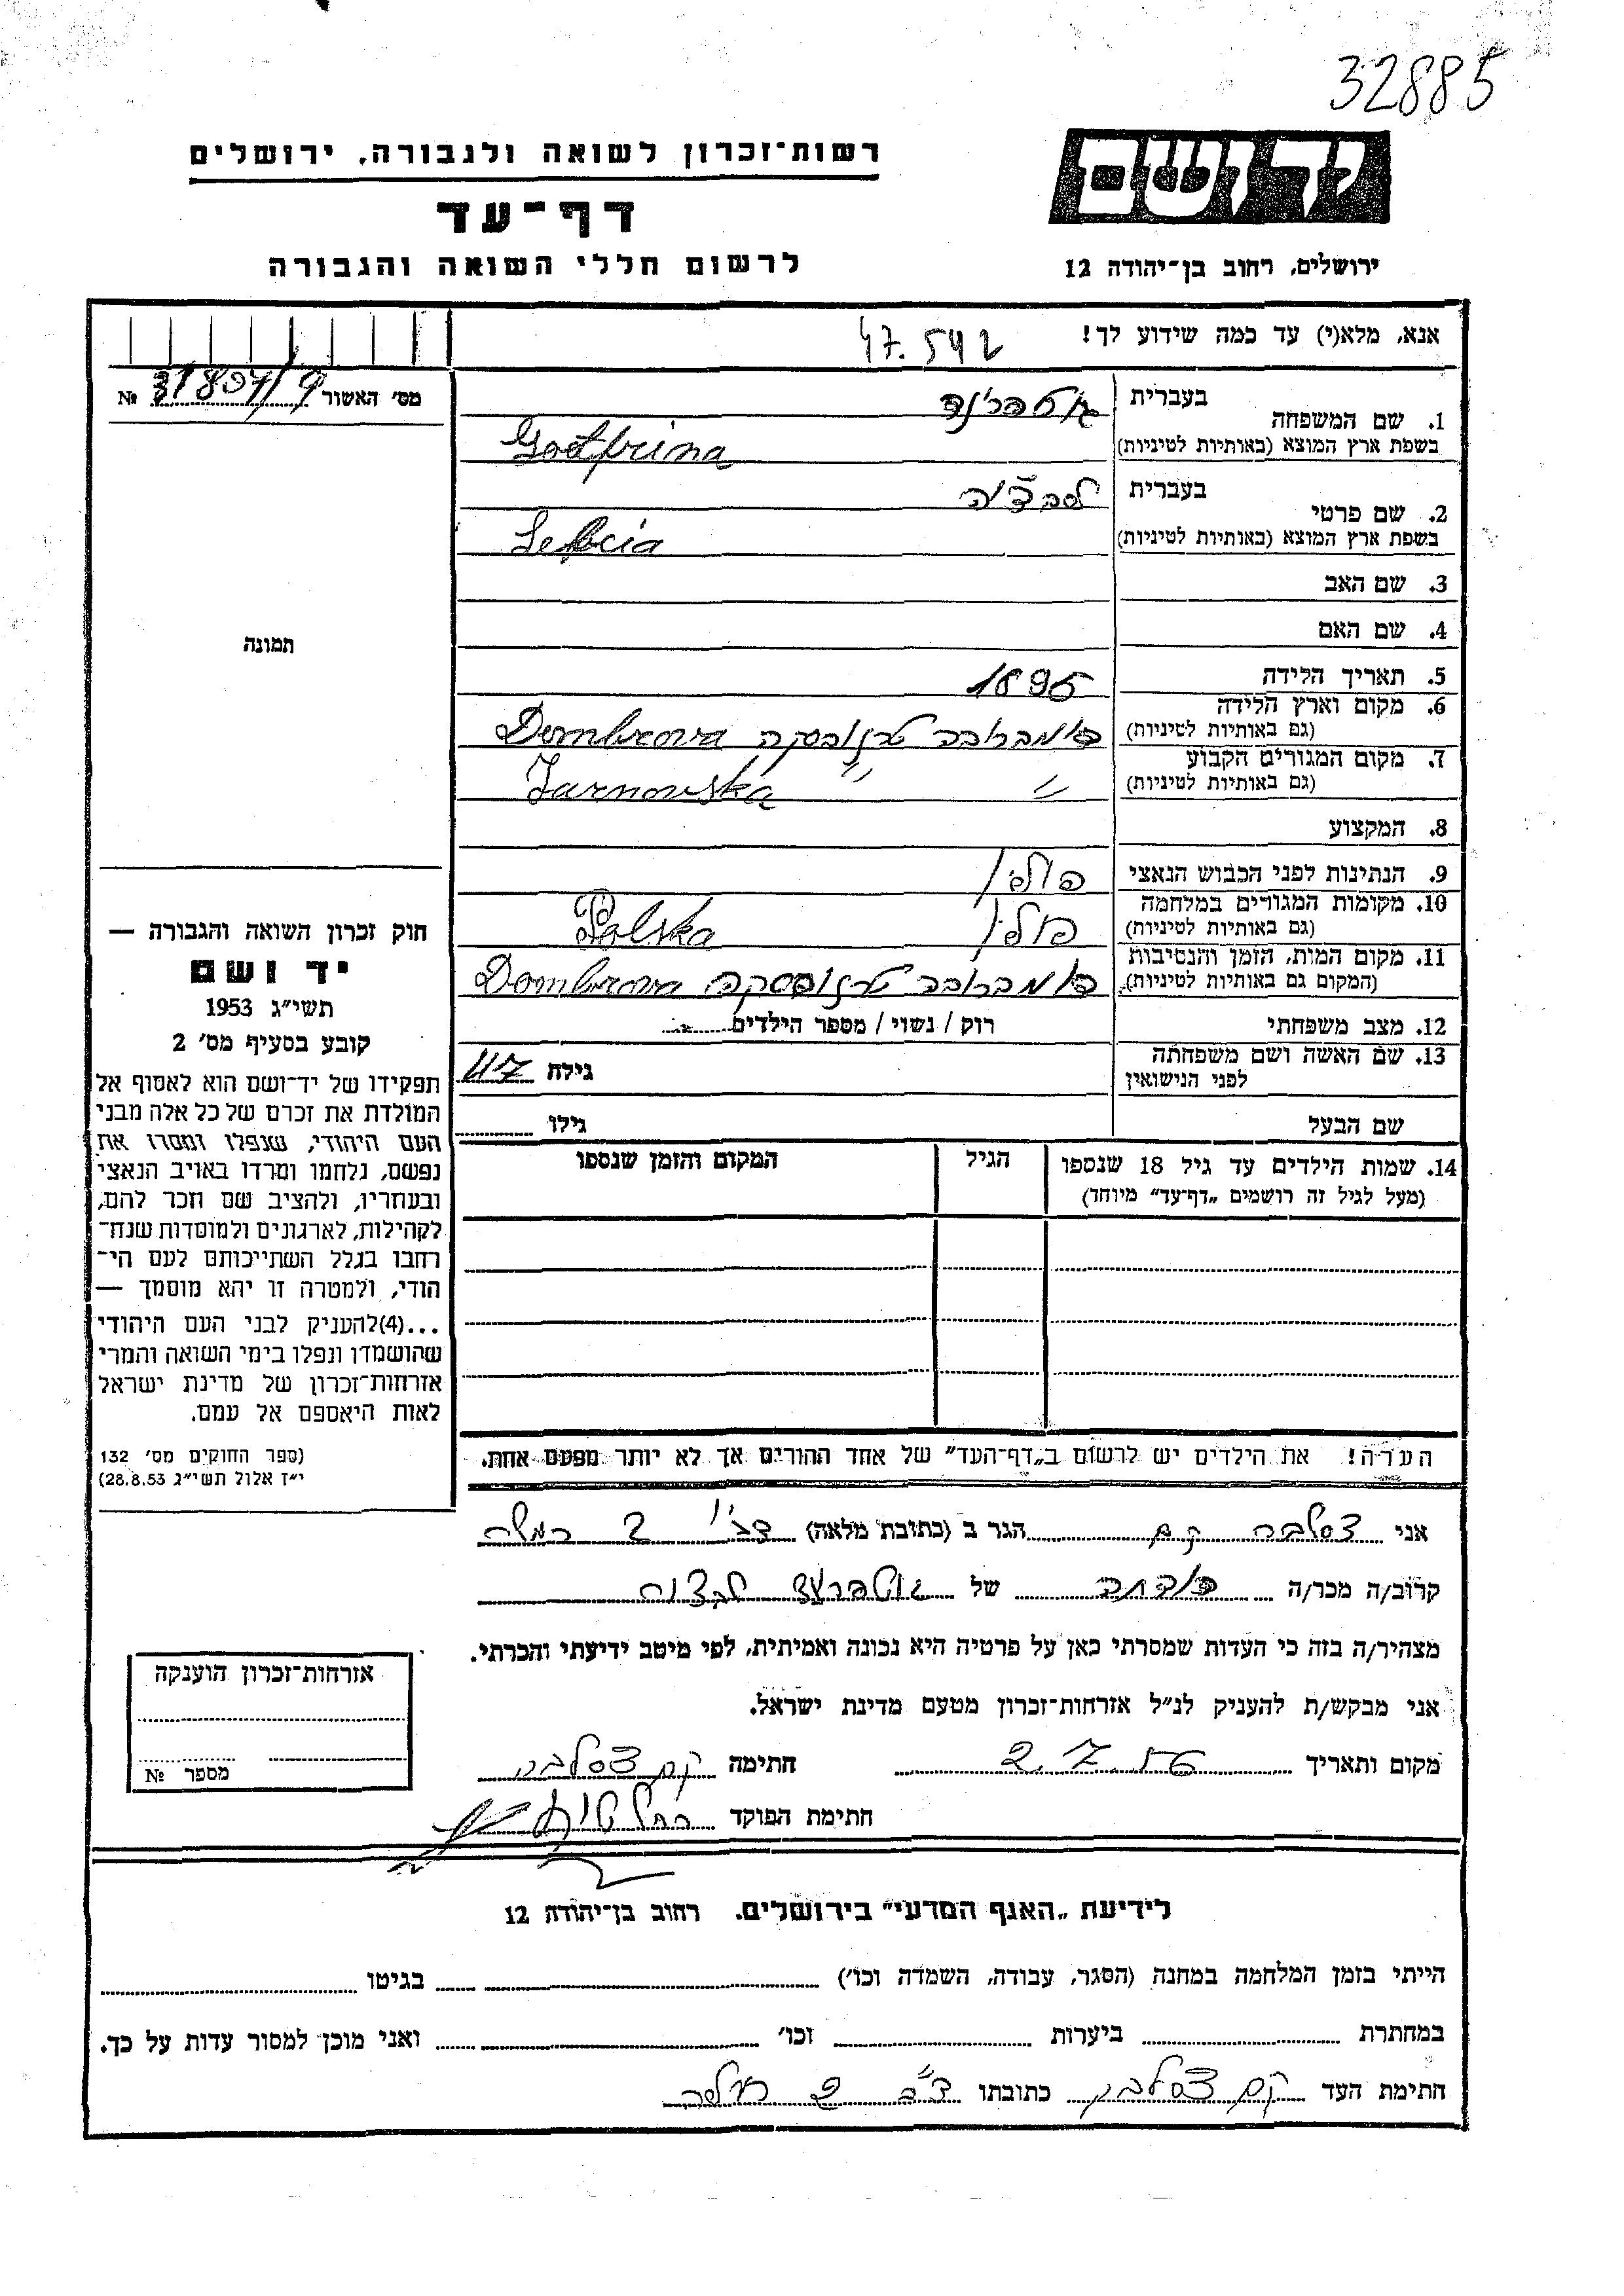 32885
יד ושם
רשות־זכרון לשואה ולגבורה, ירושלים
דף־עד
לרשום חללי השואה והגבורה
ירושלים, רחוב בן־יהודה 12
אנא, מלא(י) עד כמה שידוע לך!
47.542
מס׳ האשור № 31807/9
1. שם המשפחה
בעברית
בשפת ארץ המוצא (באותיות לטיניות)
2. שם פרטי
בעברית
בשפת ארץ המוצא (באותיות לטיניות)
3. שם האב
4. שם האם
תמונה
5. תאריך הלידה 1895
6. מקום וארץ הלידה
(גם באותיות לטיניות) דומברובה טרנובסקה Dombrowa
7. מקום המגורים הקבוע
(גם באותיות לטיניות) " " Tarnowska
8. המקצוע
9. הנתינות לפני הכבוש הנאצי פולין
10. מקומות המגורים במלחמה
(גם באותיות לטיניות) פולין Polska
11. מקום המות, הזמן והנסיבות
(המקום גם באותיות לטיניות) דומברובה טרנובסקה Dombrowa
12. מצב משפחתי רוק / נשוי / מספר הילדים
13. שם האשה ושם משפחתה
לפני הנישואין גילה 47
שם הבעל גילו
14. שמות הילדים עד גיל 18 שנספו
(מעל לגיל זה רושמים „דף־עד״ מיוחד)
הגיל
המקום והזמן שנספו
הערה! את הילדים יש לרשום ב„דף־העד״ של אחד ההורים אך לא יותר מפעם אחת.
חוק זכרון השואה והגבורה —
יד ושם
תשי״ג 1953
קובע בסעיף מס׳ 2
תפקידו של יד־ושם הוא לאסוף אל
המולדת את זכרם של כל אלה מבני
העם היהודי, שנפלו ומסרו את
נפשם, נלחמו ומרדו באויב הנאצי
ובעוזריו, ולהציב שם וזכר להם,
לקהילות, לארגונים ולמוסדות שנח־
רבו בגלל השתייכותם לעם הי־
הודי, ולמטרה זו יהא מוסמך —
...(4)להעניק לבני העם היהודי
שהושמדו ונפלו בימי השואה והמרי
אזרחות־זכרון של מדינת ישראל
לאות היאספם אל עמם.
(ספר החוקים מס׳ 132
י״ז אלול תשי״ג 28.8.53)
אני הגר ב (כתובת מלאה) 2 רמלה
קרוב/ה מכר/ה של
מצהיר/ה בזה כי העדות שמסרתי כאן על פרטיה היא נכונה ואמיתית, לפי מיטב ידיעתי והכרתי.
אני מבקש/ת להעניק לנ״ל אזרחות־זכרון מטעם מדינת ישראל.
מקום ותאריך 2.7.56 חתימה
חתימת הפוקד
אזרחות־זכרון הוענקה
מספר №
לידיעת „האגף המדעי״ בירושלים. רחוב בן־יהודה 12
הייתי בזמן המלחמה במחנה (הסגר, עבודה, השמדה וכו׳) בגיטו
במחתרת ביערות וכו׳ ואני מוכן למסור עדות על כך.
חתימת העד כתובתו 2 רמלה